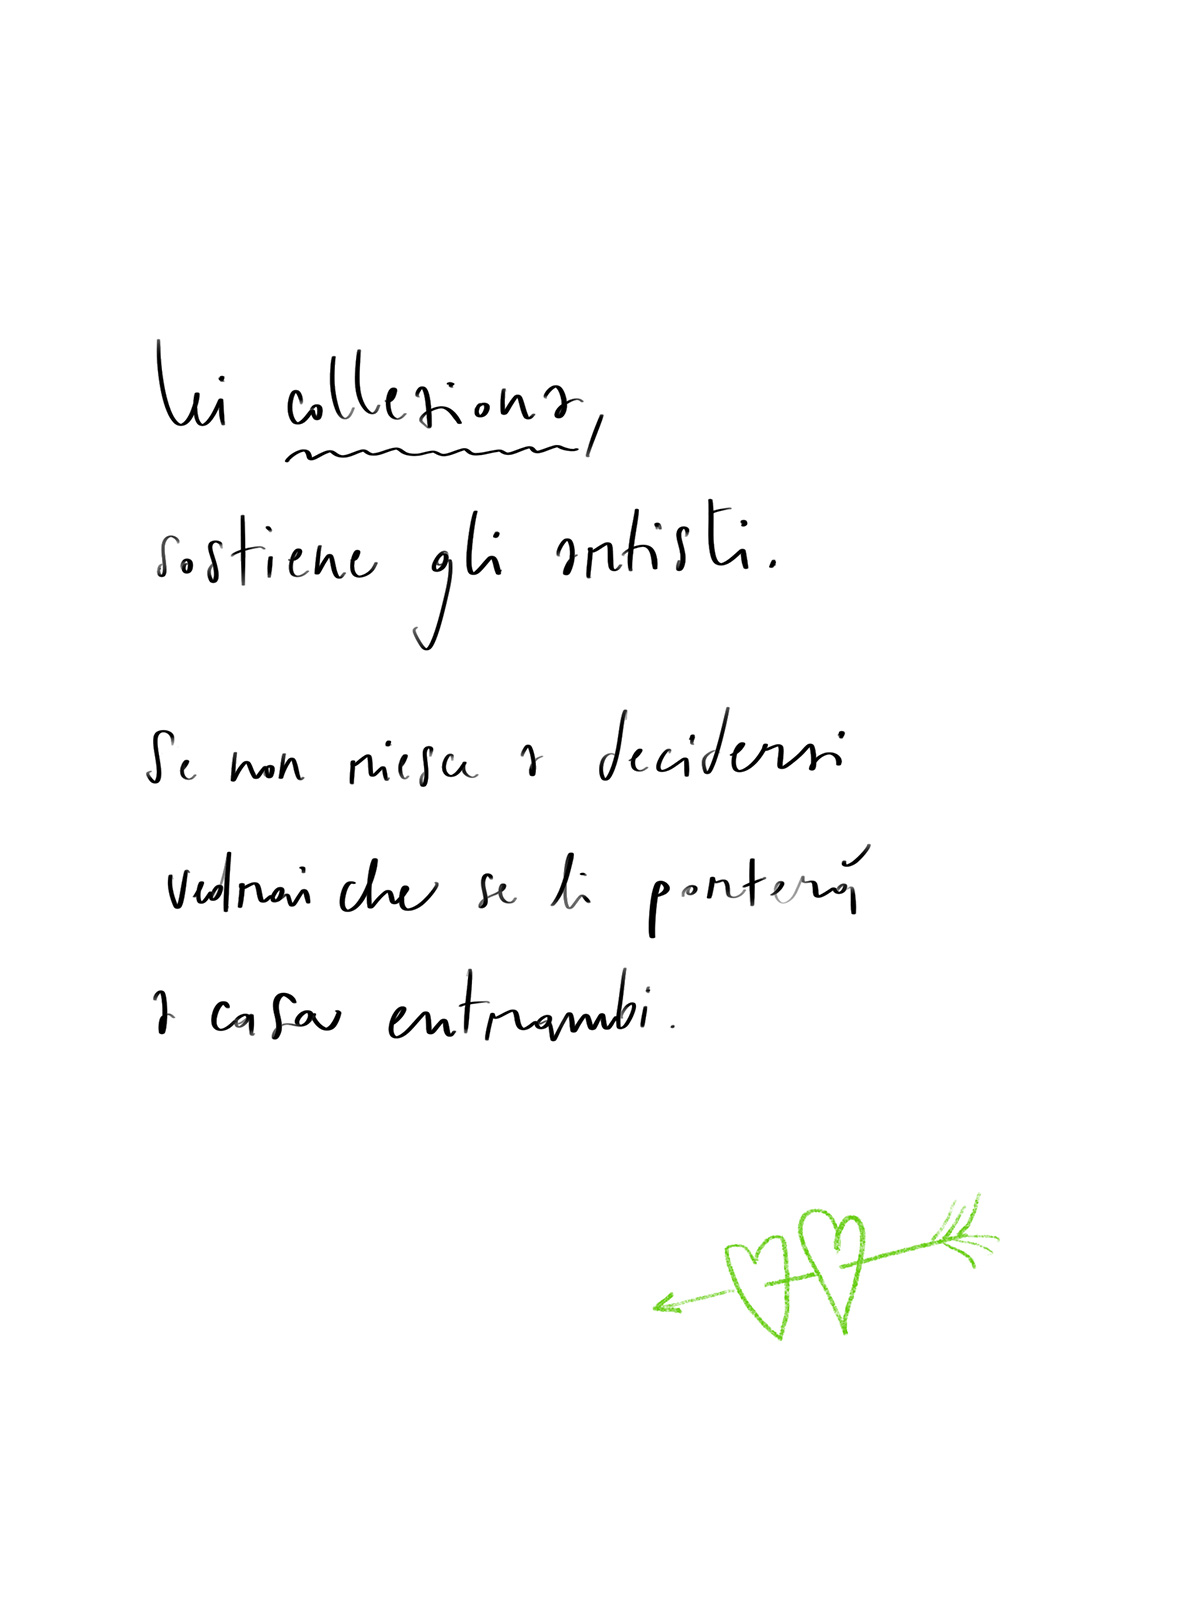 lui colleziona,
sostiene gli artisti.
Se non riesce a decidersi
vedrai che se li porterá
a casa entrambi.